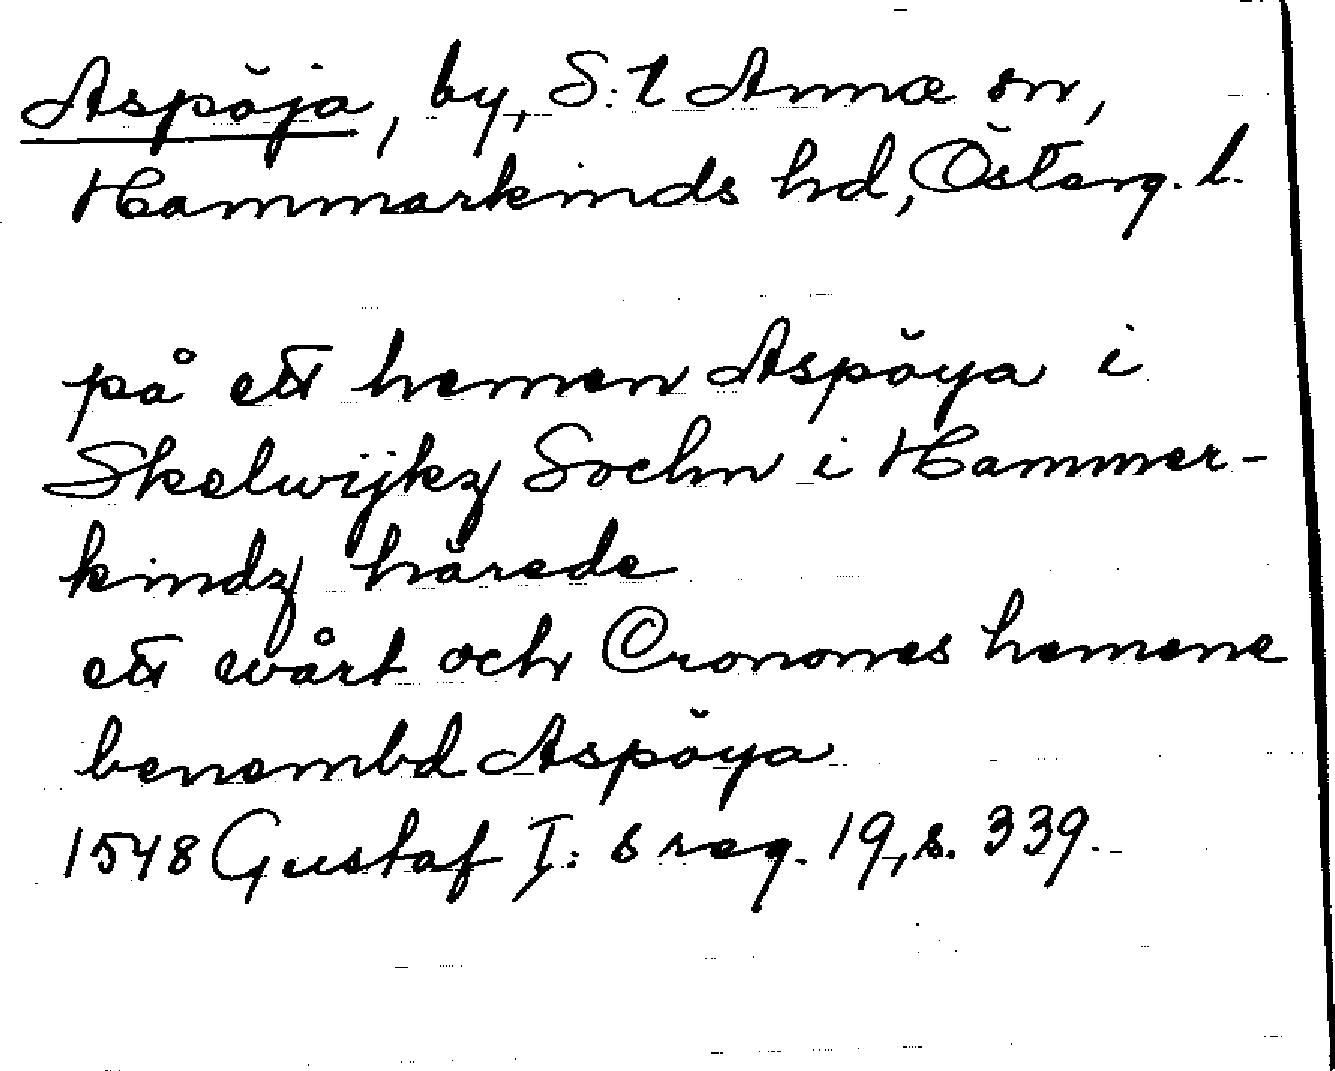 Aspöja, by, S:t Annæ sn,
Hammarkinds hd, Österg. l.
på ett hemen Aspöya i
Skelwijkz Sochn i Hammer-
kindz härede
ett wårt och Cronones hemene
benembd Aspöya
1548 Gustaf I:s reg. 19, s. 339.